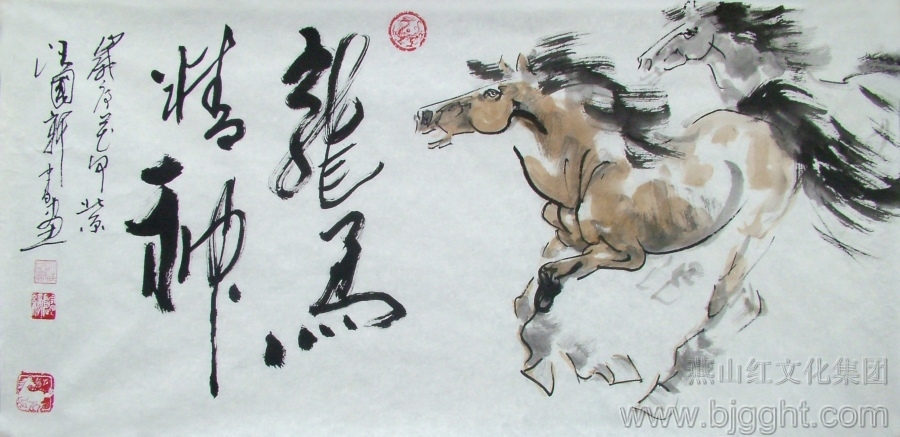 龍馬
精神
歲庚寅年北京
汪國新書畫
燕山红文化集团
www.bjgght.com